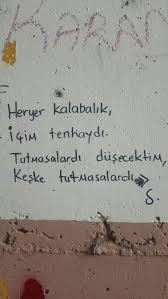 KARA
Heryer kalabalık,
İçim tenhaydı.
Tutmasalardı düşecektim,
Keşke tutmasalardı..
S.